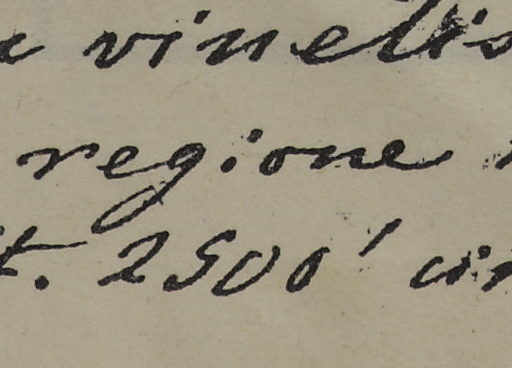 vinetis
regione
t. 2500'